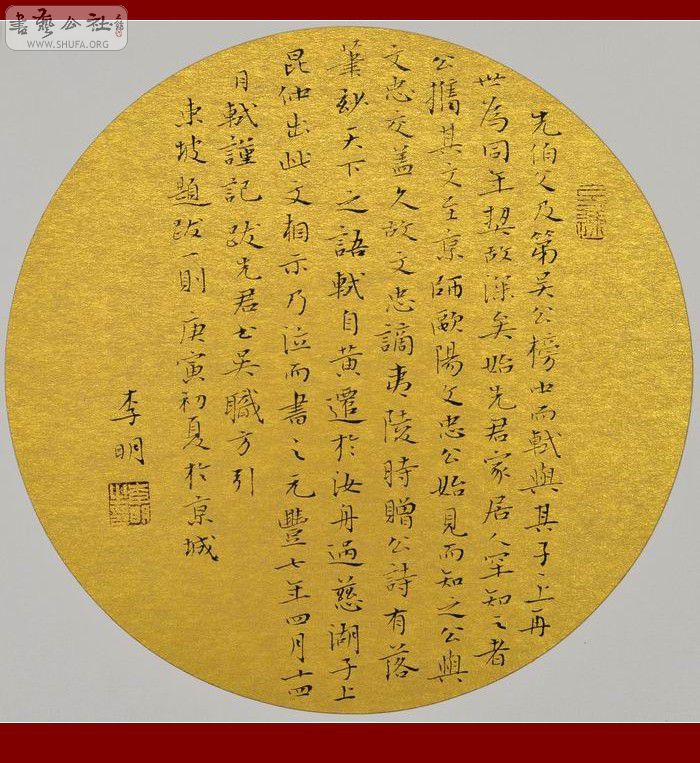 書藝公社
WWW.SHUFA.ORG
先伯父及第吳公榜中而軾與其子上再
世為同年契故深矣始先君家居人罕知之者
公攜其文至京師歐陽文忠公始見而知之公與
文忠交蓋久故文忠謫夷陵時贈公詩有落
筆妙天下之語軾自黃遷於汝舟過慈湖子上
昆仲出此文相示乃泣而書之元豐七年四月十四
日軾謹記 跋先君書吳職方引
東坡題跋一則 庚寅初夏於京城
李明